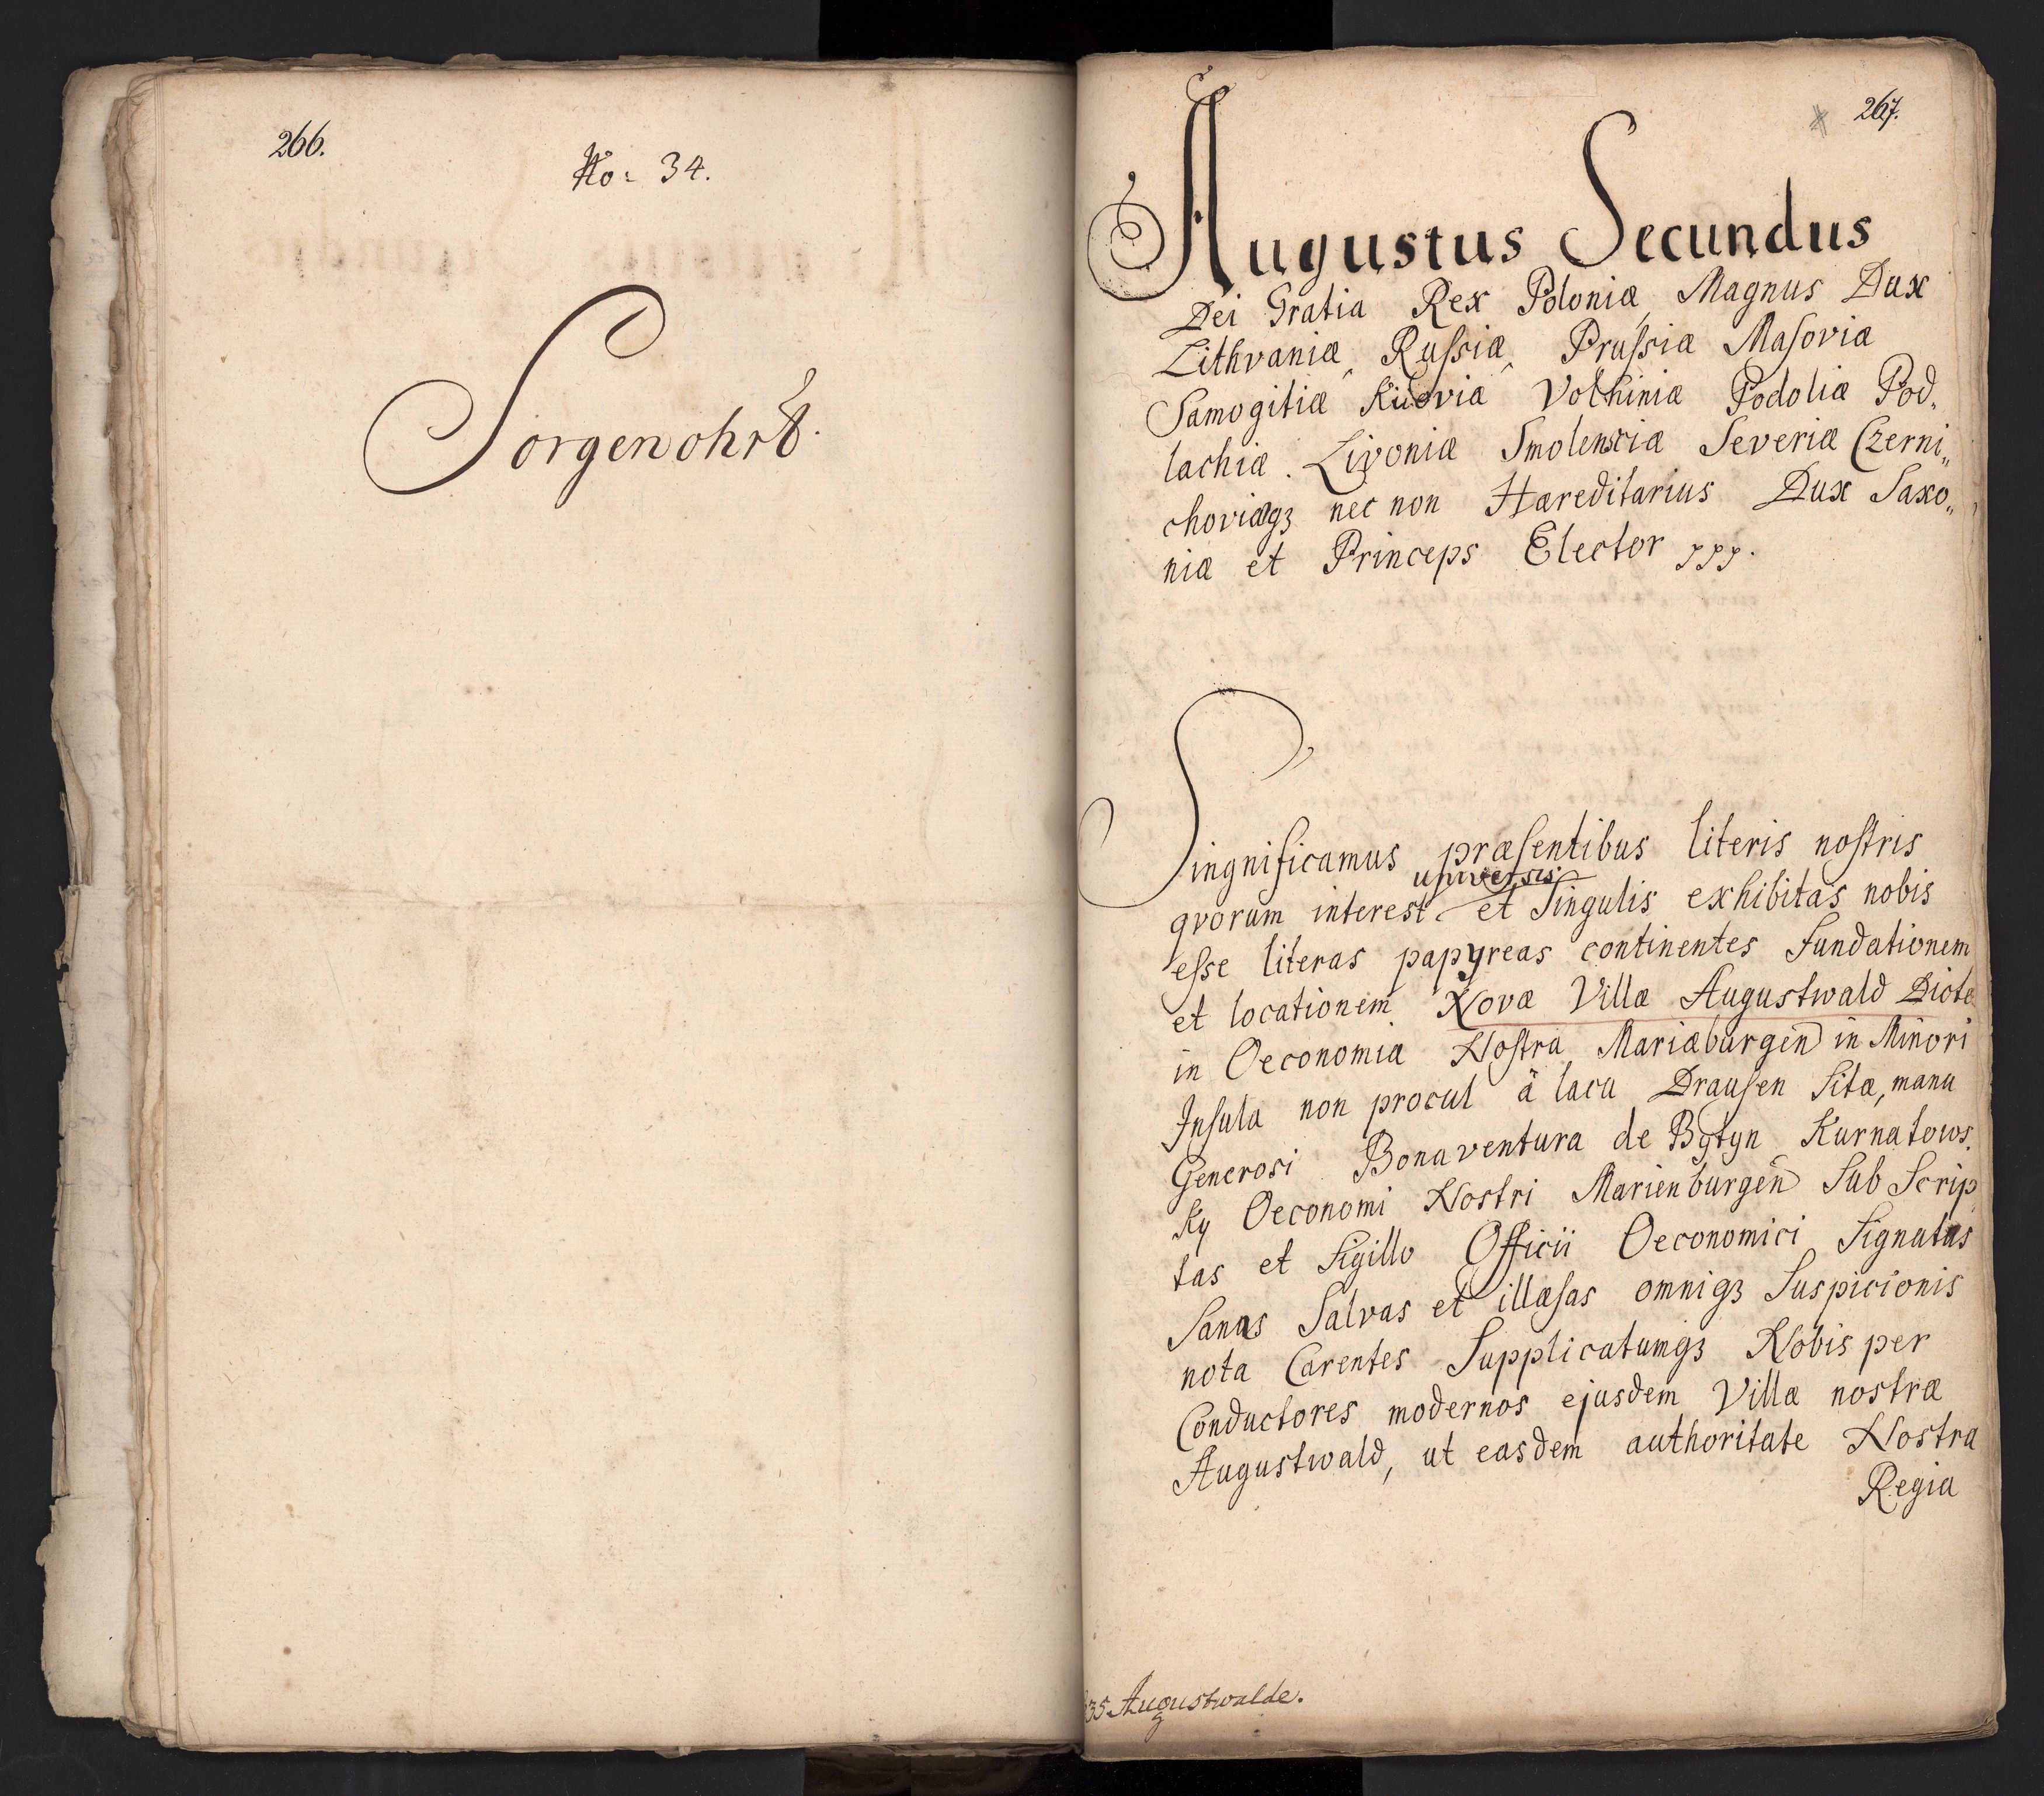 266.
No: 34.
Sorgenohrt.
267.
Augustus Secundus
Dei Gratia Rex Poloniæ, Magnus Dux
Lithvaniæ, Ruſsiæ, Pruſsiæ Maſoviæ
Samogitiæ Kiioviæ Volhiniæ Podoliæ Pod„
lachiæ. Livoniæ Smolensciæ Severiæ Czerni„
choviæqз nec non Hæreditarius Dux Saxo„
niæ et Princeps Elector
Singnificamus præſentibus literis noſtris
universis
qvorum interest et Singulis exhibitas nobis
eſse literas papyreas continentes Fundationem
et locationem Novæ Villæ Augustwald Dictæ
in Oeconomia Noſtra Mariæburgen̄ in Minori
Inſula non procul â lacu Drauſen Sitæ, manu
Generosi Bonaventura de Bytyn Kurnatows„
ky Oeconomi Nostri Marienburgen̄ Sub Scrip„
tas et Sigillo Officii Oeconomici Signatas
Sanas Salvas et illæſas omniqз Suspicionis
nota Carentes Supplicatumqз Nobis per
Conductores modernos ejusdem Villæ nostræ
Augustwald, ut easdem authoritate Nostra
Regia
35 Augustwalde.